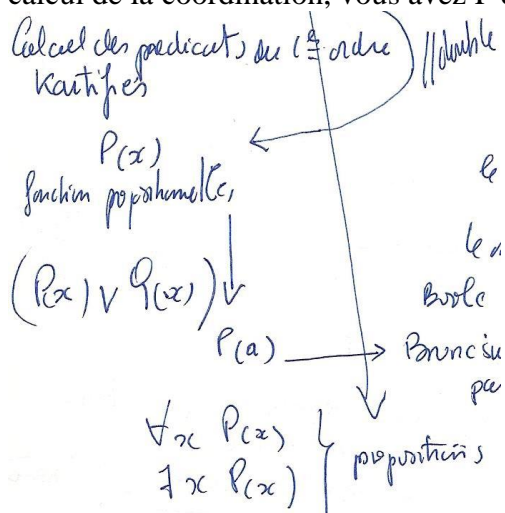 calcul de la coordination, vous avez l'
Calcul des prédicats du 1er ordre // double
P(x)
fonction propositionnelle,
le
(P(x) ∨ Q(x))
Boole
P(a)
∀x P(x)
∃x P(x) } propositions